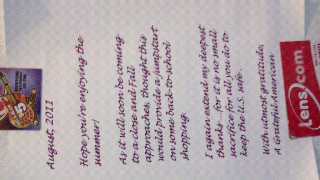 August, 2011
Hope you're enjoying the
summer!
As it will soon be coming
to a close and Fall
approaches, thought this
would provide a jumpstart
on some back-to-school
shopping.
I again extend my deepest
thanks...for it is no small
sacrifice for all you do to
keep the U.S. safe...
With utmost gratitude,
A Grateful American
Lens.com